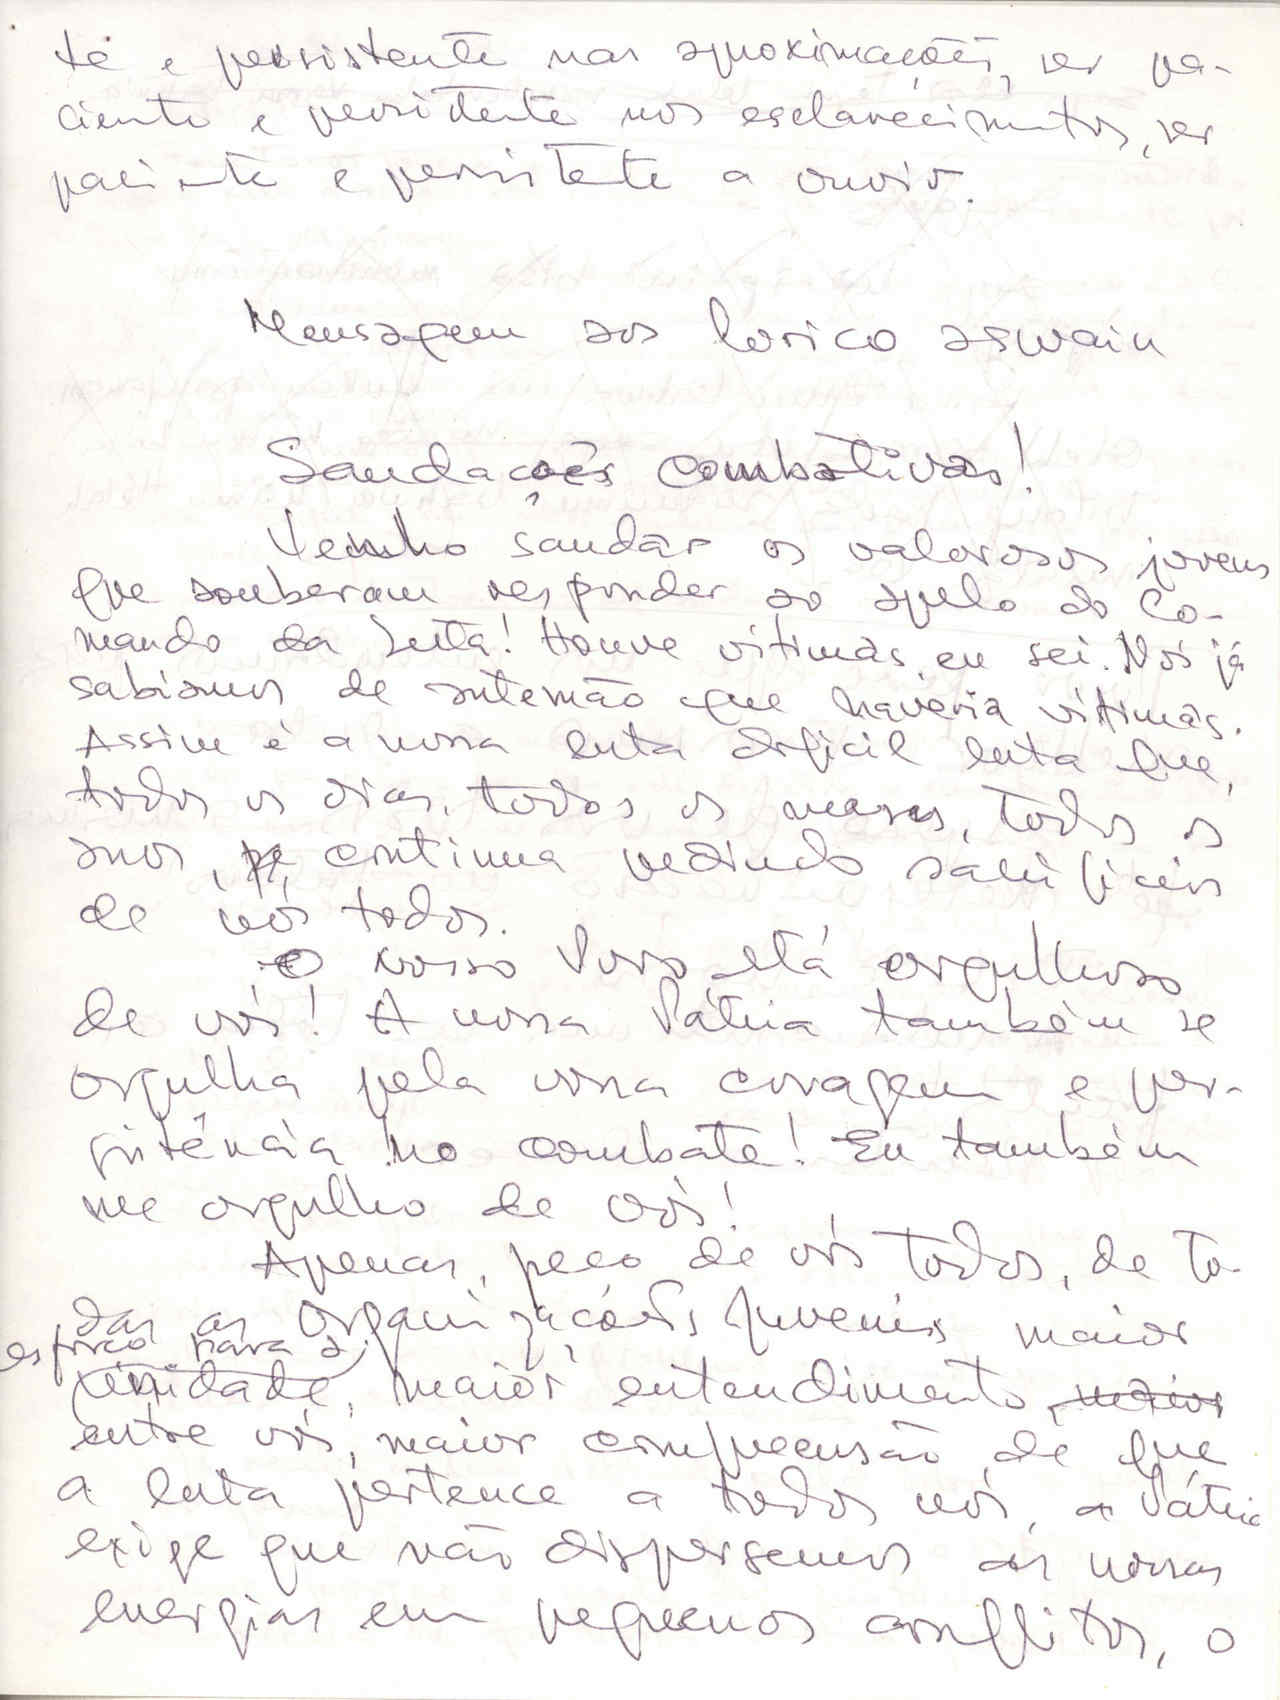 te e persistente nas aproximações, ser pa-
ciente e persistente nos esclarecimentos, ser
paciente e persistente a ouvir.
Mensagem aos lorico aswain
Saudações combativas!
Venho saudar os valorosos jovens
que souberam responder ao apelo do Co-
mando da Luta! Houve vítimas, eu sei. Nós já
sabíamos de antemão que haveria vítimas.
Assim é a nossa luta difícil luta que,
todos os dias, todos os meses, todos os
anos, continua pedindo sacrifícios
de nós todos.
O nosso Povo está orgulhoso
de vós! A nossa Pátria também se
orgulha pela vossa coragem e per-
sistência no combate! Eu também
me orgulho de vós!
Apenas, peço de vós todos, de to-
das as Organizações Juvenis maior
esforço para a
unidade, maior entendimento maior
entre vós, maior compreensão de que
a luta pertence a todos nós, a Pátria
exige que não dispersemos as nossas
energias em pequenos conflitos, o